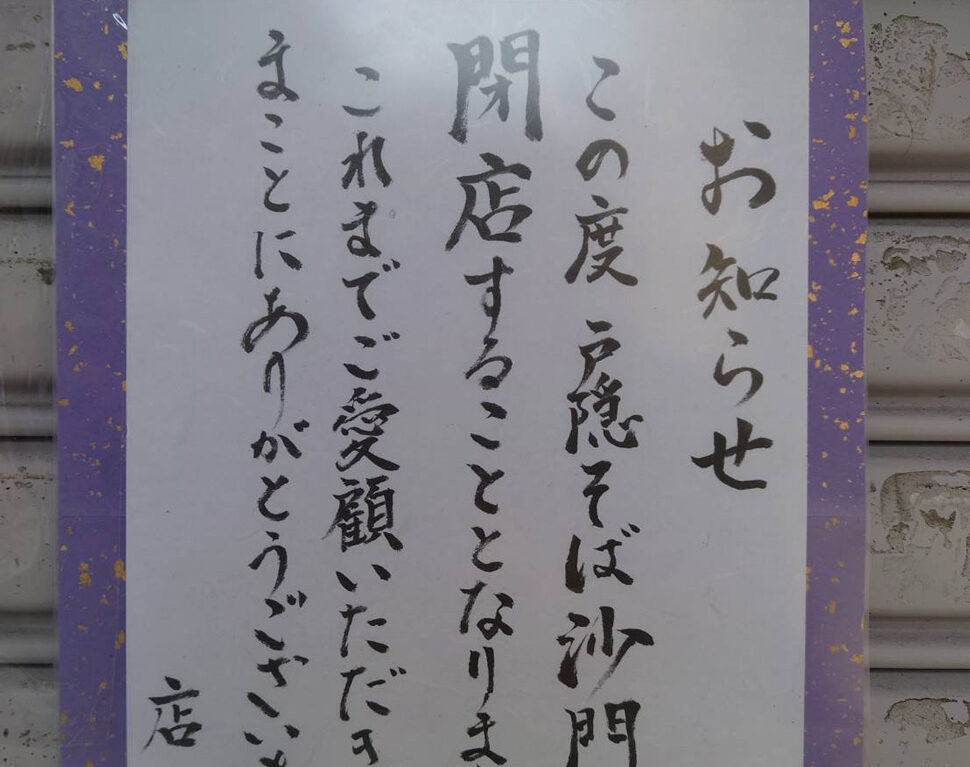 お知らせ
この度 戸隠そば沙門
閉店することとなりま
これまでご愛顧いただき
まことにありがとうござい
店